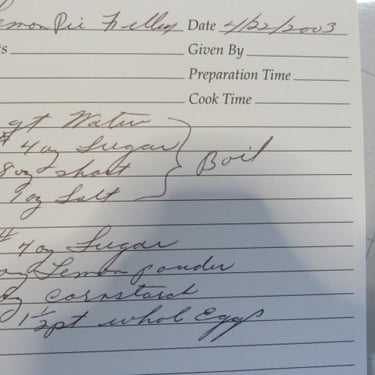 Lemon Pie Filling Date 4/22/2003
Given By
Preparation Time
Cook Time
qt Water
# 4 oz Sugar
8 oz short Boil
1 oz Salt
# 4 oz Sugar
oz Lemon powder
oz Cornstarch
1 1/2 pt whol Eggs